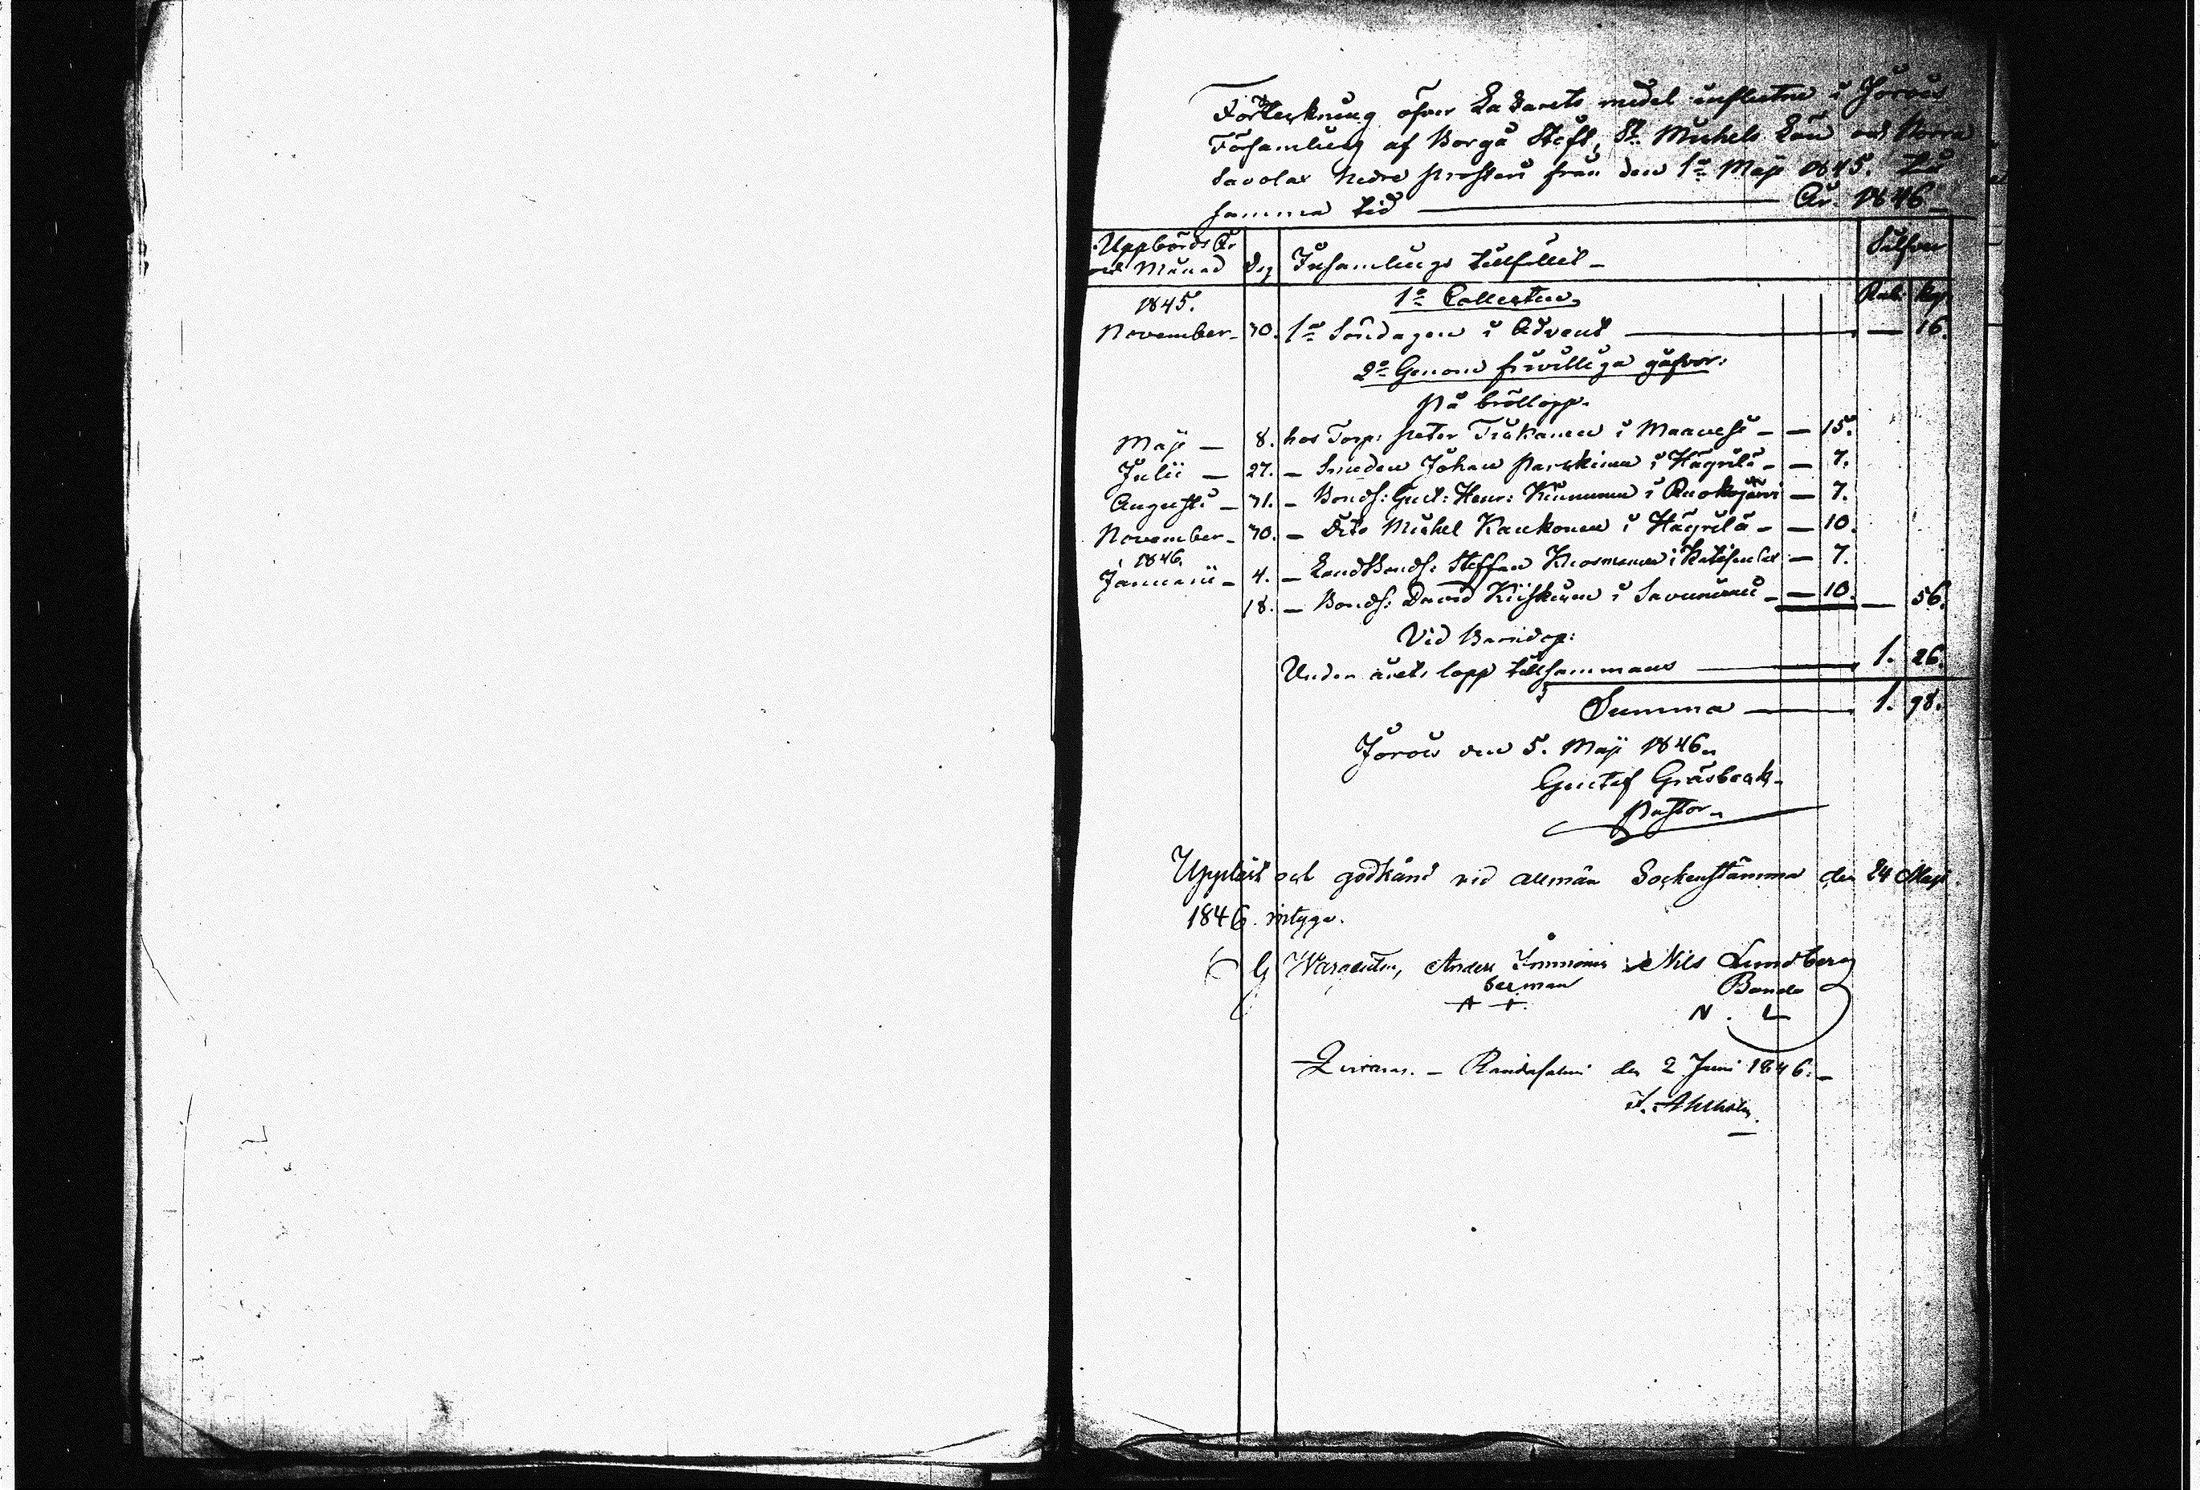 Förteckning öfver Lazarets medel influtne i Jorois
Församling af Borgå Stift, St. Michels Län och Norra
Savolax Nedre prosteri från den 1a Maji 1845. till
samma tid — År 1846
Uppbörds År och Månad Dag Insamlings tillfället — Silfver
1845. 1o Collecten Rub: kop:
November — 30. 1a Söndagen i Advent — — 16.
2o Genom frivilliga gåfvor:
På bröllopp.
Maji — 8. hos Torp: Peter Tiukanen i Maavesi — — 15.
Julii — 27. — Smeden Johan Parkkinen i Häyrilä — — 7.
Augusti — 31. — Bonds: Gust: Henr: Kinnunen i Ruokojärvi — 7.
November — 30. — Dito Michel Kaukonen i Häyrilä — — 10.
1846.
Januarii — 4. — Landtbonds: Steffan Kosmanen i — 7.
18. — Bonds: David Kiiskinen i Savuniemi — — 10. — 56.
Vid Barndop:
Under årets lopp tillsammans — 1. 26.
Summa — 1. 98.
Jorois den 5. Maji 1846.
Gustaf Gråsbeck.
Pastor.
Uppläst och godkänd vid allmän Sockenstämma den 24 Maji
1846. intyga.
G Wargentin, Anders Immonen Nils Lundberg
Bonde
A I. N. L
Randasalmi den 2 Juni 1846. —